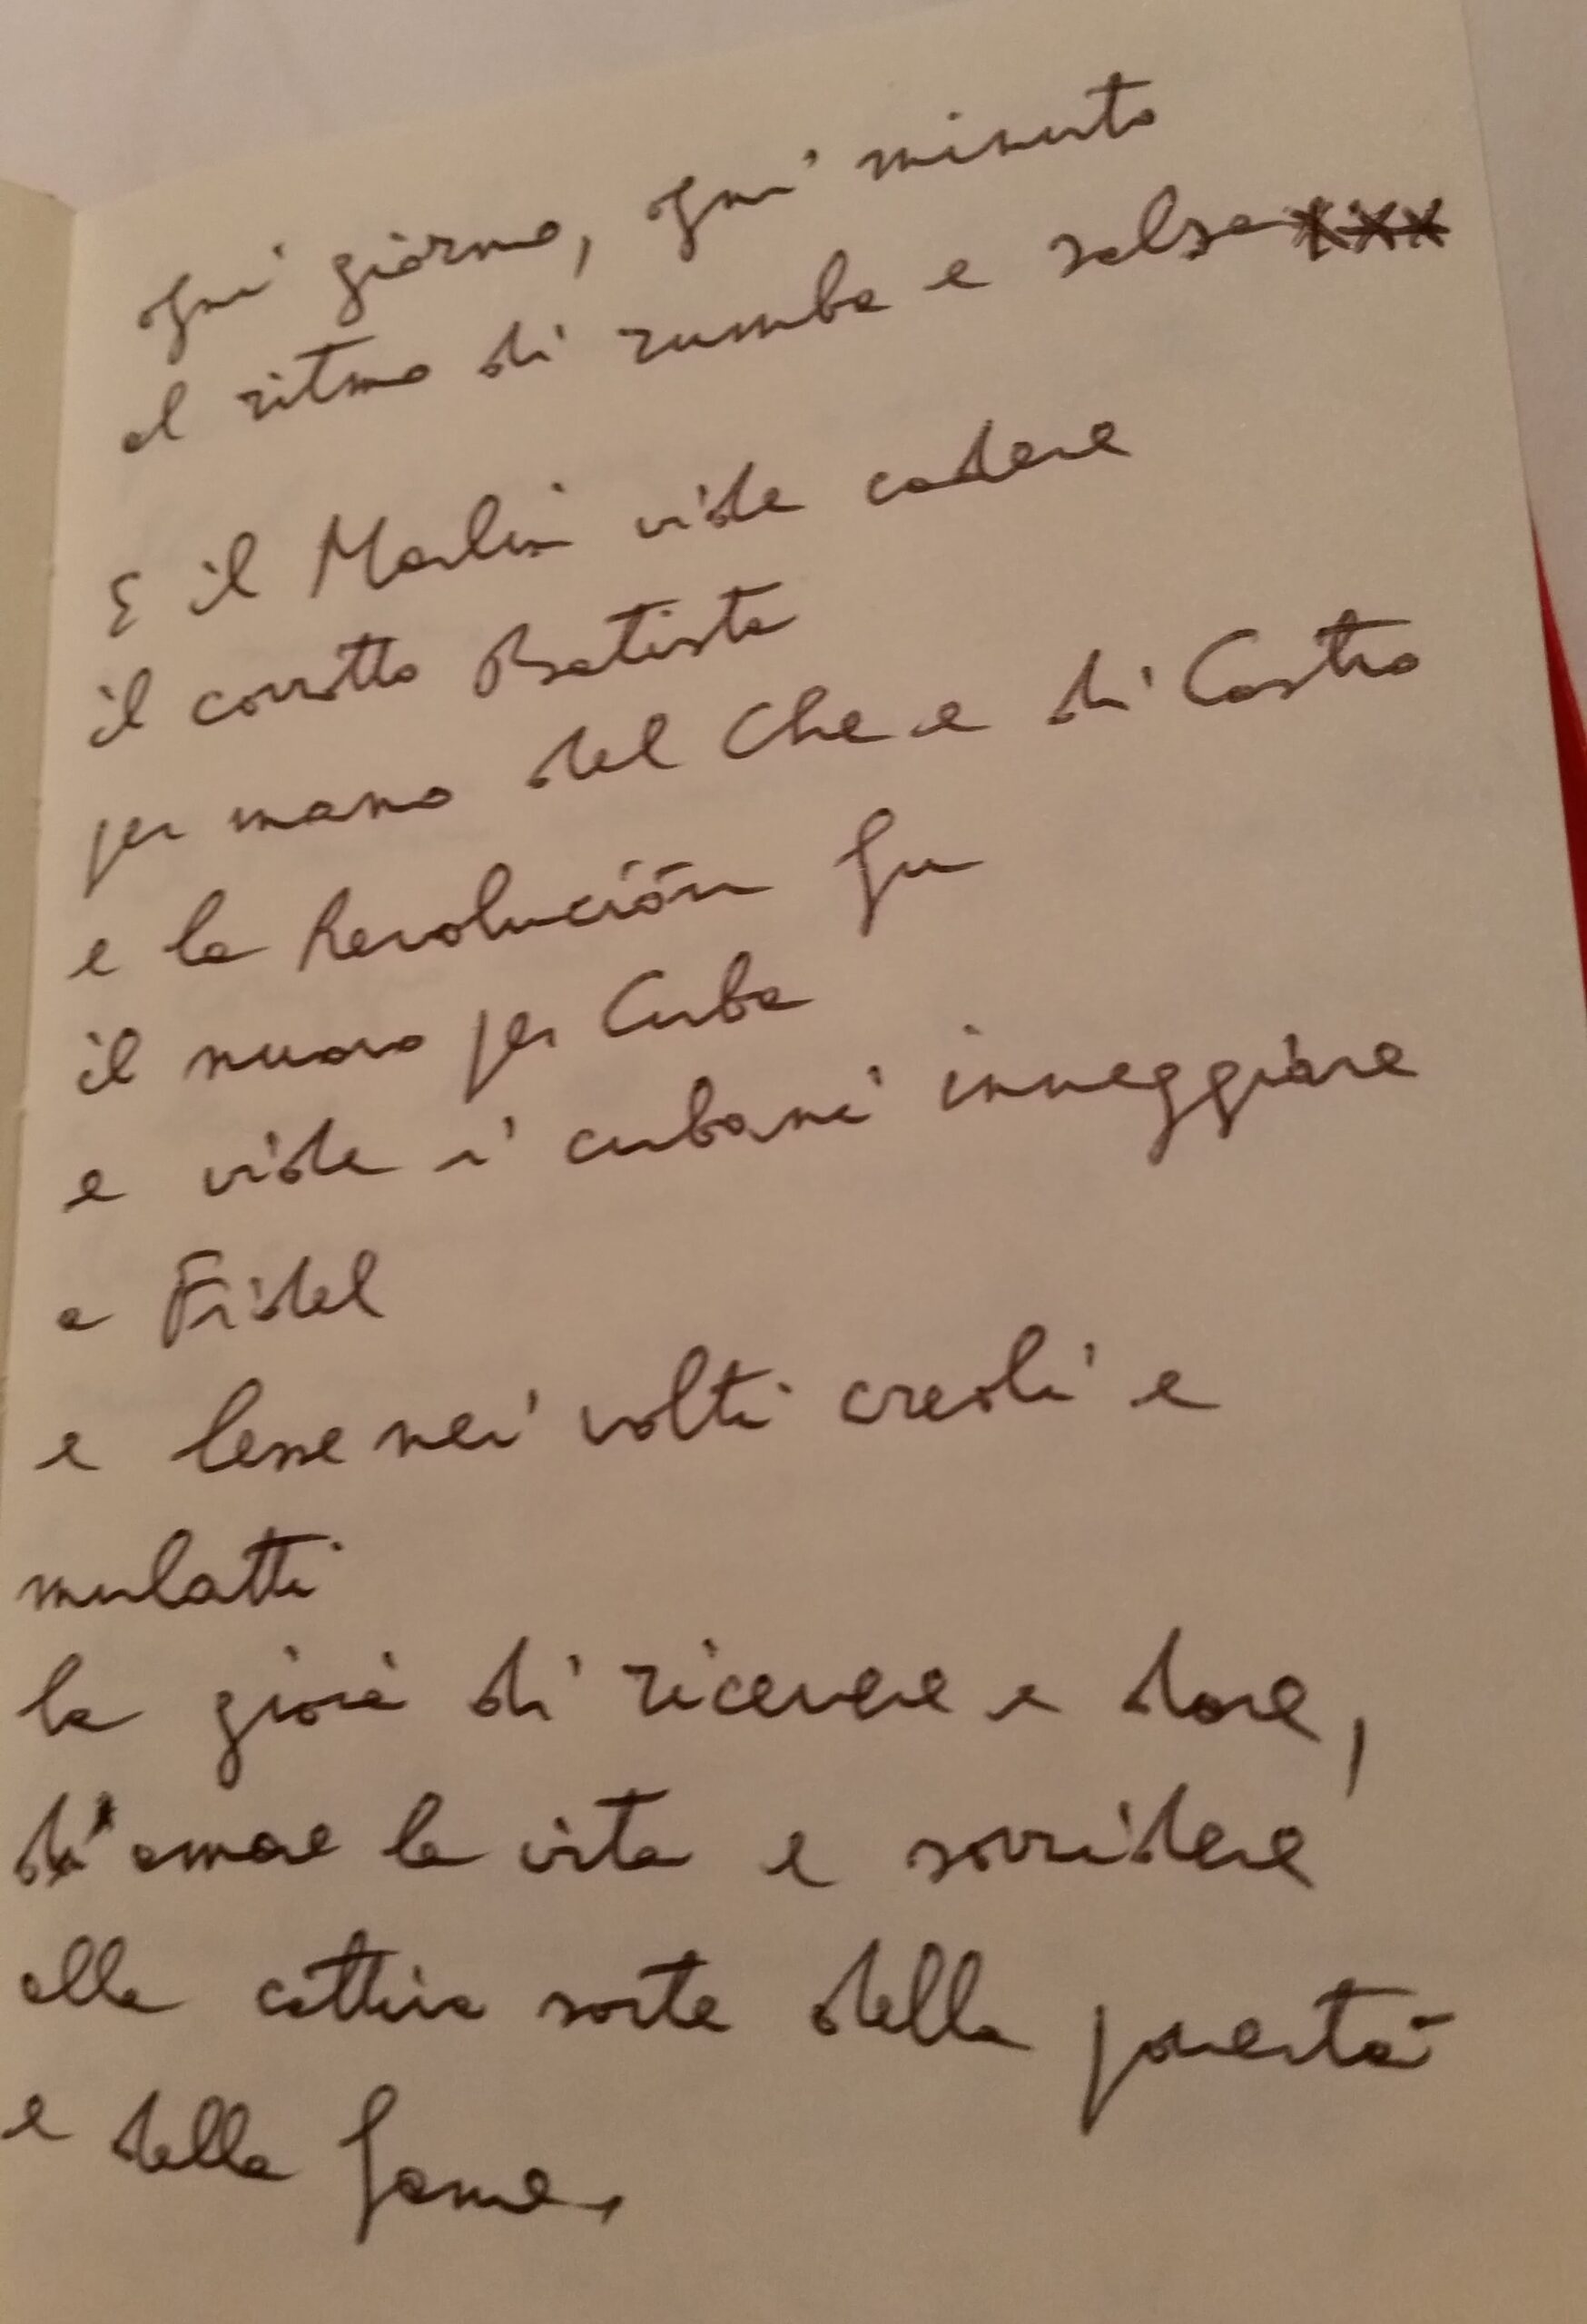 ogni giorno, ogni minuto
al ritmo di rumba e salsa
E il Marlin vide cadere
il corrotto Batista
per mano del Che e di Castro
e la Revolución fu
il nuovo per Cuba
e vide i cubani inneggiare
a Fidel
e lesse nei volti creoli e
mulatti
la gioia di ricevere e dare,
di amare la vita e sorridere
alla cattiva sorte della povertà
e della fame,